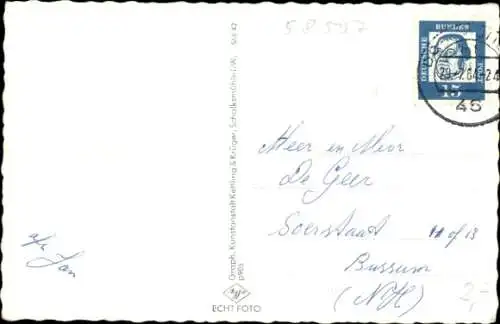 58557
DEUTSCHE
BUNDESPOST
15
45
Meer en Mevr
De Geer
Soerstaat 11 of 13
Bussum
(NH)
a/a Jan
2,-
Graph. Kunstanstalt Kettling & Krüger, Schalksmühle i.W.
ECHT FOTO